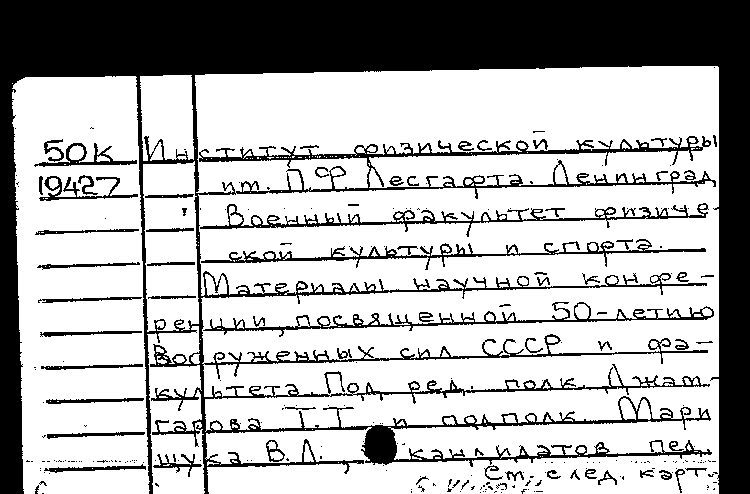 50К Институт физической культуры
19427 им. П.Ф Лесгафта. Ленинград
Военный факультет физиче-
ской культуры и спорта.
Материалы научной конфе-
ренции, посвященной 50-летию
Вооруженных сил СССР и фа-
культета. Под. ред. полк. Джам-
гарова Т.Т и подполк. Мари
щука В.Л., кандидатов пед.
См. след. карт.